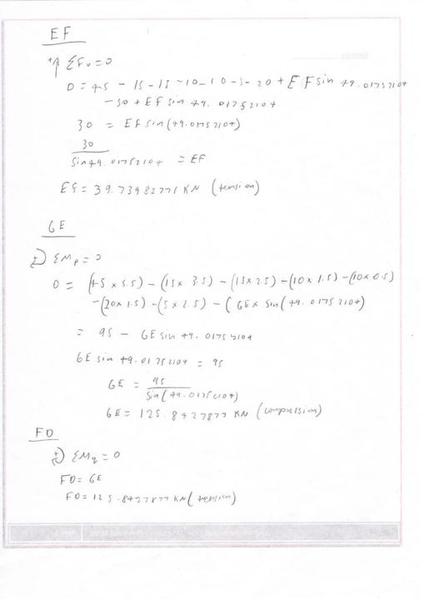 EF
+↑ ΣFv = 0
0 = 45 - 15 - 15 - 10 - 10 - 5 - 20 + EF sin 49.01752104
- 30 + EF sin 49.01752104
30 = EF sin(49.01752104)
30
sin 49.01752104 = EF
EF = 39.73982771 KN (tension)
GE
ΣMp = 0
0 = (45 x 5.5) - (15 x 3.5) - (15 x 2.5) - (10 x 1.5) - (10 x 0.5)
- (20 x 1.5) - (5 x 2.5) - (GE x sin(49.01752104)
= 95 - GE sin 49.01752104
GE sin 49.01752104 = 95
GE = 95
sin(49.01752104)
GE = 125.8427877 KN (compression)
FD
ΣMq = 0
FD = GE
FD = 125.8427877 KN (tension)